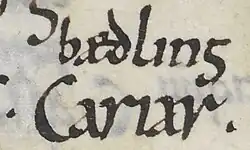 bædling
Cariar.